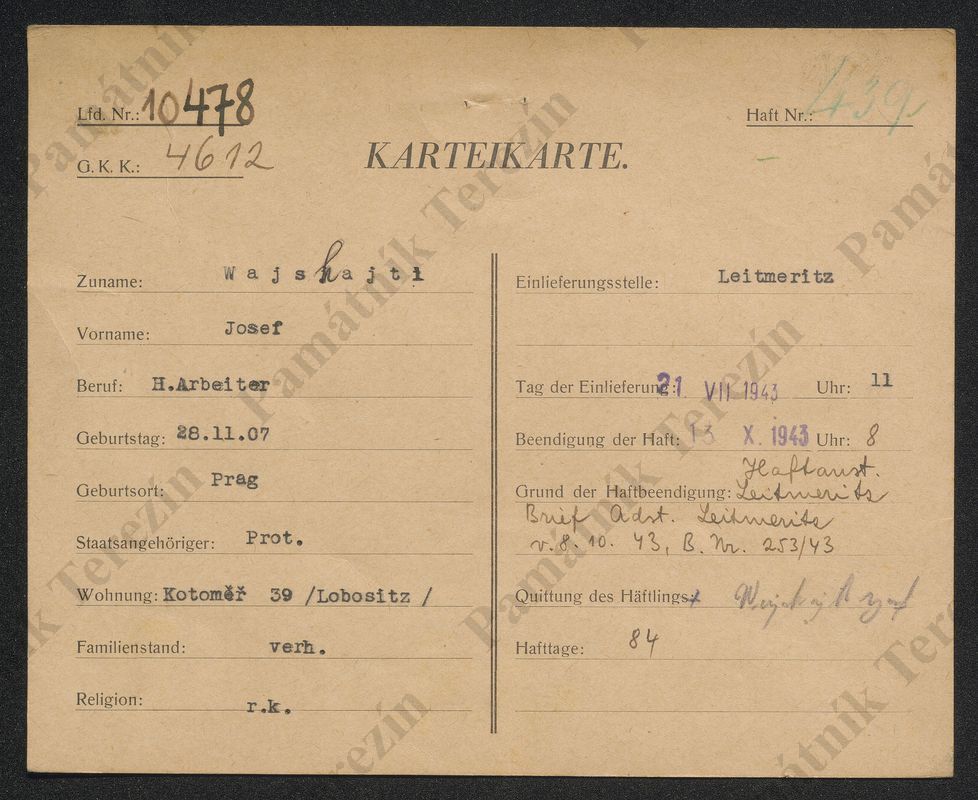 Lfd. Nr.: 10478
Haft Nr.: 439
G. K. K.: 4612
KARTEIKARTE.
Zuname: Wajshajtl
Vorname: Josef
Beruf: H.Arbeiter
Geburtstag: 28.11.07
Geburtsort: Prag
Staatsangehöriger: Prot.
Wohnung: Kotoměř 39 /Lobositz /
Familienstand: verh.
Religion: r.k.
Einlieferungsstelle: Leitmeritz
Tag der Einlieferung: 21 VII 1943 Uhr: 11
Beendigung der Haft: 13 X. 1943 Uhr: 8
Haftanst.
Grund der Haftbeendigung: Leitmeritz
Brief Adst. Leitmeritz
v. 8. 10. 43, B. Nr. 253/43
Quittung des Häftlings:
Hafttage: 84
Památník Terezín